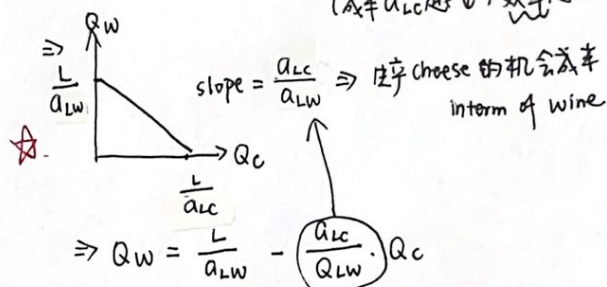 (成本 aLC
⇒ QW
L/aLW
slope = aLC/aLW ⇒ 生产 cheese 的机会成本
interm of wine
☆. → QC
L/aLC
⇒ QW = L/aLW - aLC/QLW · QC